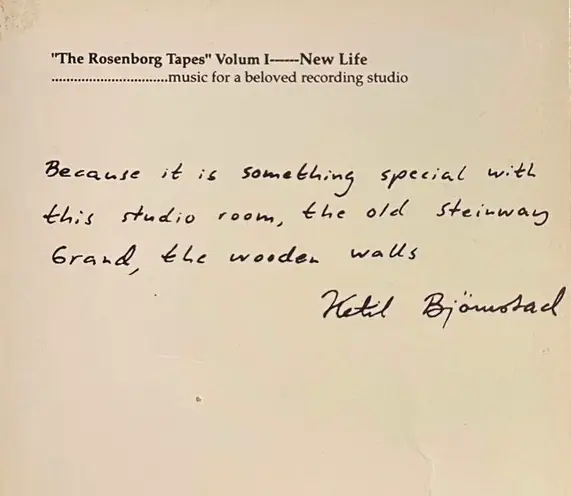 "The Rosenborg Tapes" Volum I-----New Life
................................music for a beloved recording studio
Because it is something special with
this studio room, the old Steinway
Grand, the wooden walls
Ketil Björnstad